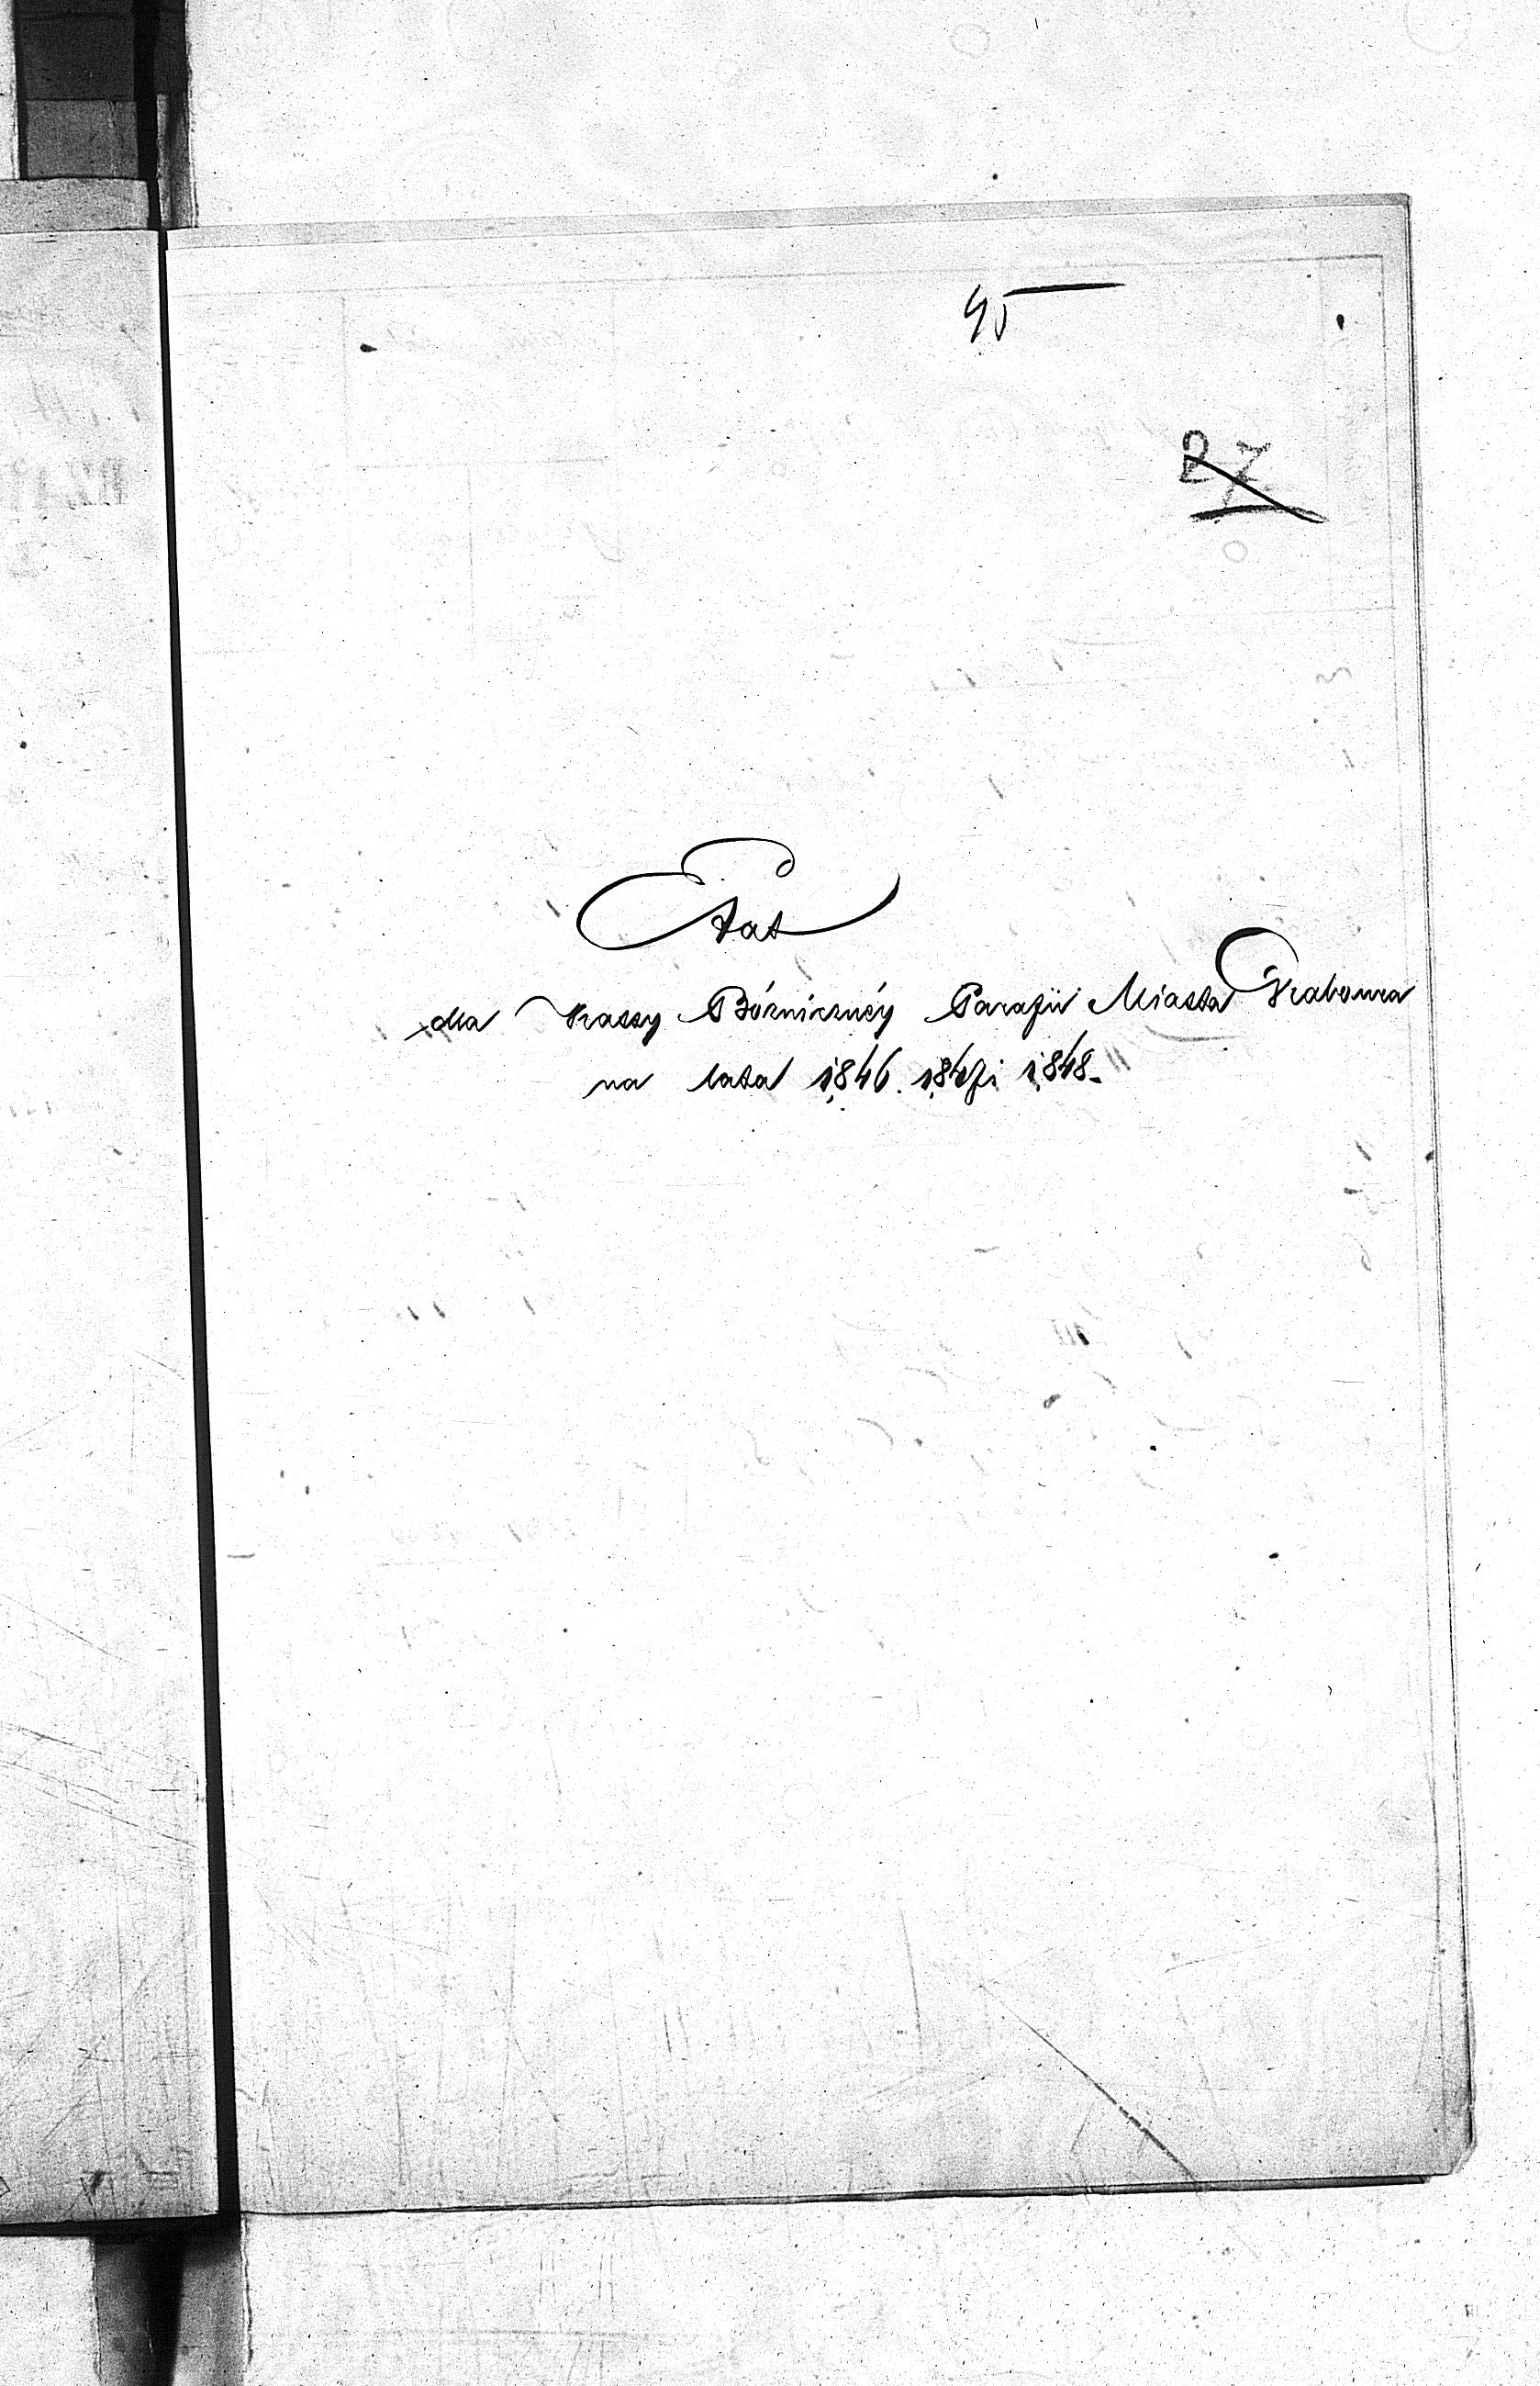 45
27
Etat
dla Kassy Bóżniczéy Parafii Miasta Grabowca
na lata 1846. 1847 i 1848.